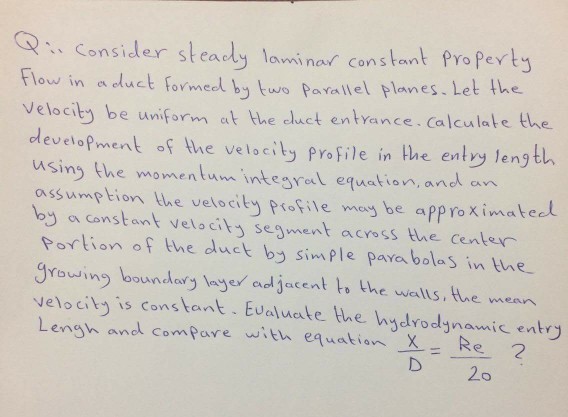 Q:. Consider steady laminar constant property
Flow in a duct formed by two parallel planes. Let the
velocity be uniform at the duct entrance. calculate the
development of the velocity profile in the entry length
using the momentum integral equation, and an
assumption the velocity profile may be approximated
by a constant velocity segment across the center
portion of the duct by simple parabolas in the
growing boundary layer adjacent to the walls, the mean
velocity is constant. Evaluate the hydrodynamic entry
Lengh and compare with equation X/D = Re/20 ?